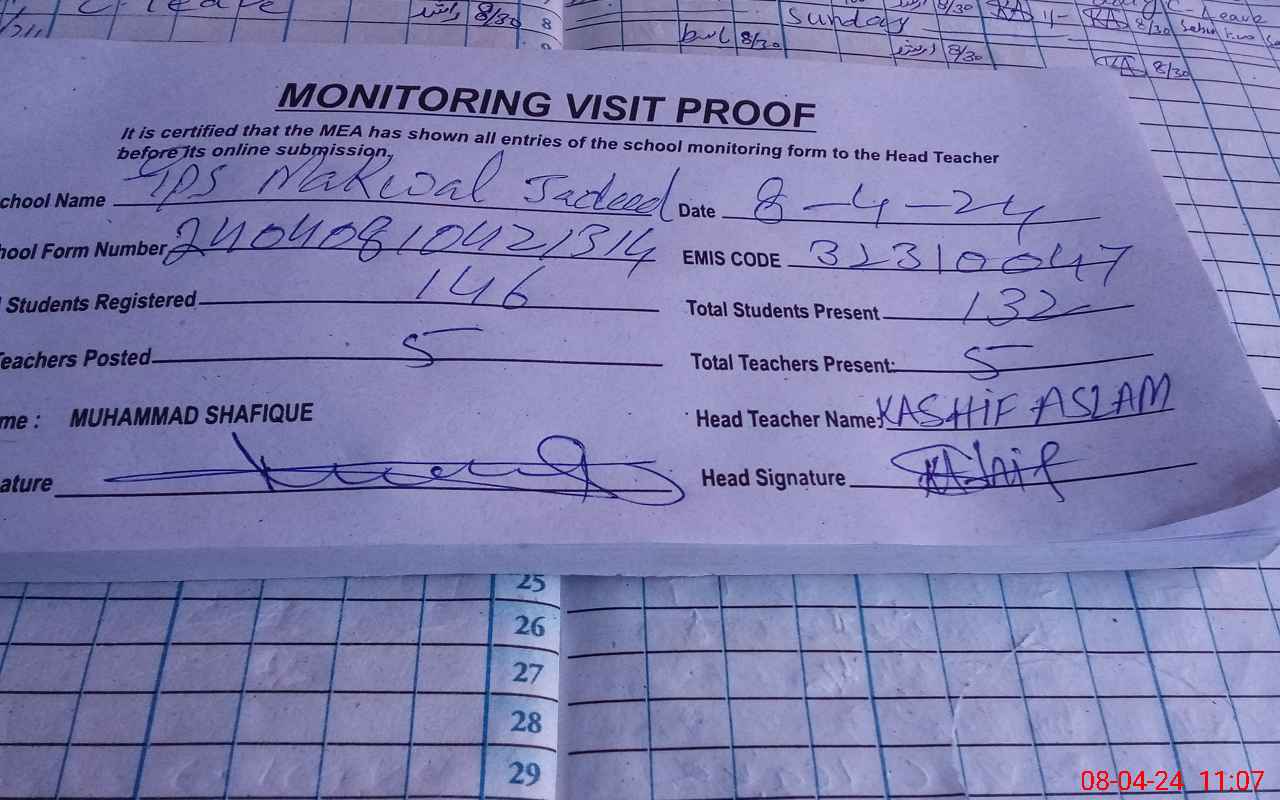 C. leave
راشد 8/30 8
Sunday 8/30 KA 11- KA 8/30
8/30 راشد 8/30 KA 8/30
MONITORING VISIT PROOF
It is certified that the MEA has shown all entries of the school monitoring form to the Head Teacher
before its online submission.
chool Name GPS Makwal Jadeed Date 8-4-24
hool Form Number 24040810421314 EMIS CODE 32310047
Students Registered 146 Total Students Present 132
eachers Posted 5 Total Teachers Present: 5
me : MUHAMMAD SHAFIQUE Head Teacher Name: KASHIF ASLAM
ature Head Signature Kashif
25
26
27
28
29
08-04-24 11:07